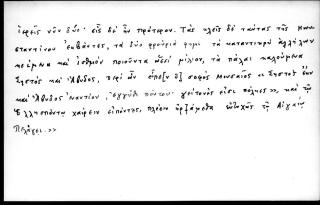 ὁρεῖς νῦν δύο· εἷς δὲ ὢν πρότερον. Τὰς πλείς δὲ ταύτας τῆς Κων
σταντίνου ἐκβάντες, τὰ δύο φρούρια φημὶ τὰ καταντικρὺ ἀλλήλων
κείμενα καὶ ἰσθμὸν ποιοῦντα ὡσεὶ μίλιον, τὰ πάλαι καλούμενα
Σηστὸς καὶ Ἄβυδος, περὶ ὧν εἶπε[ν ὁ] σοφὸς Μουσαῖος «Σηστὸς ἔην
καὶ Ἄβυδος ἐναντίον, ἐγγύθι πόντου· γείτονές εἰσι πόληες», καὶ τῷ
Ἑλλησπόντῳ χαίρειν εἰπόντες, πλέειν ἠρξάμεθα εὐτυχῶς τῷ Αἰγαίῳ
Πελάγει.»